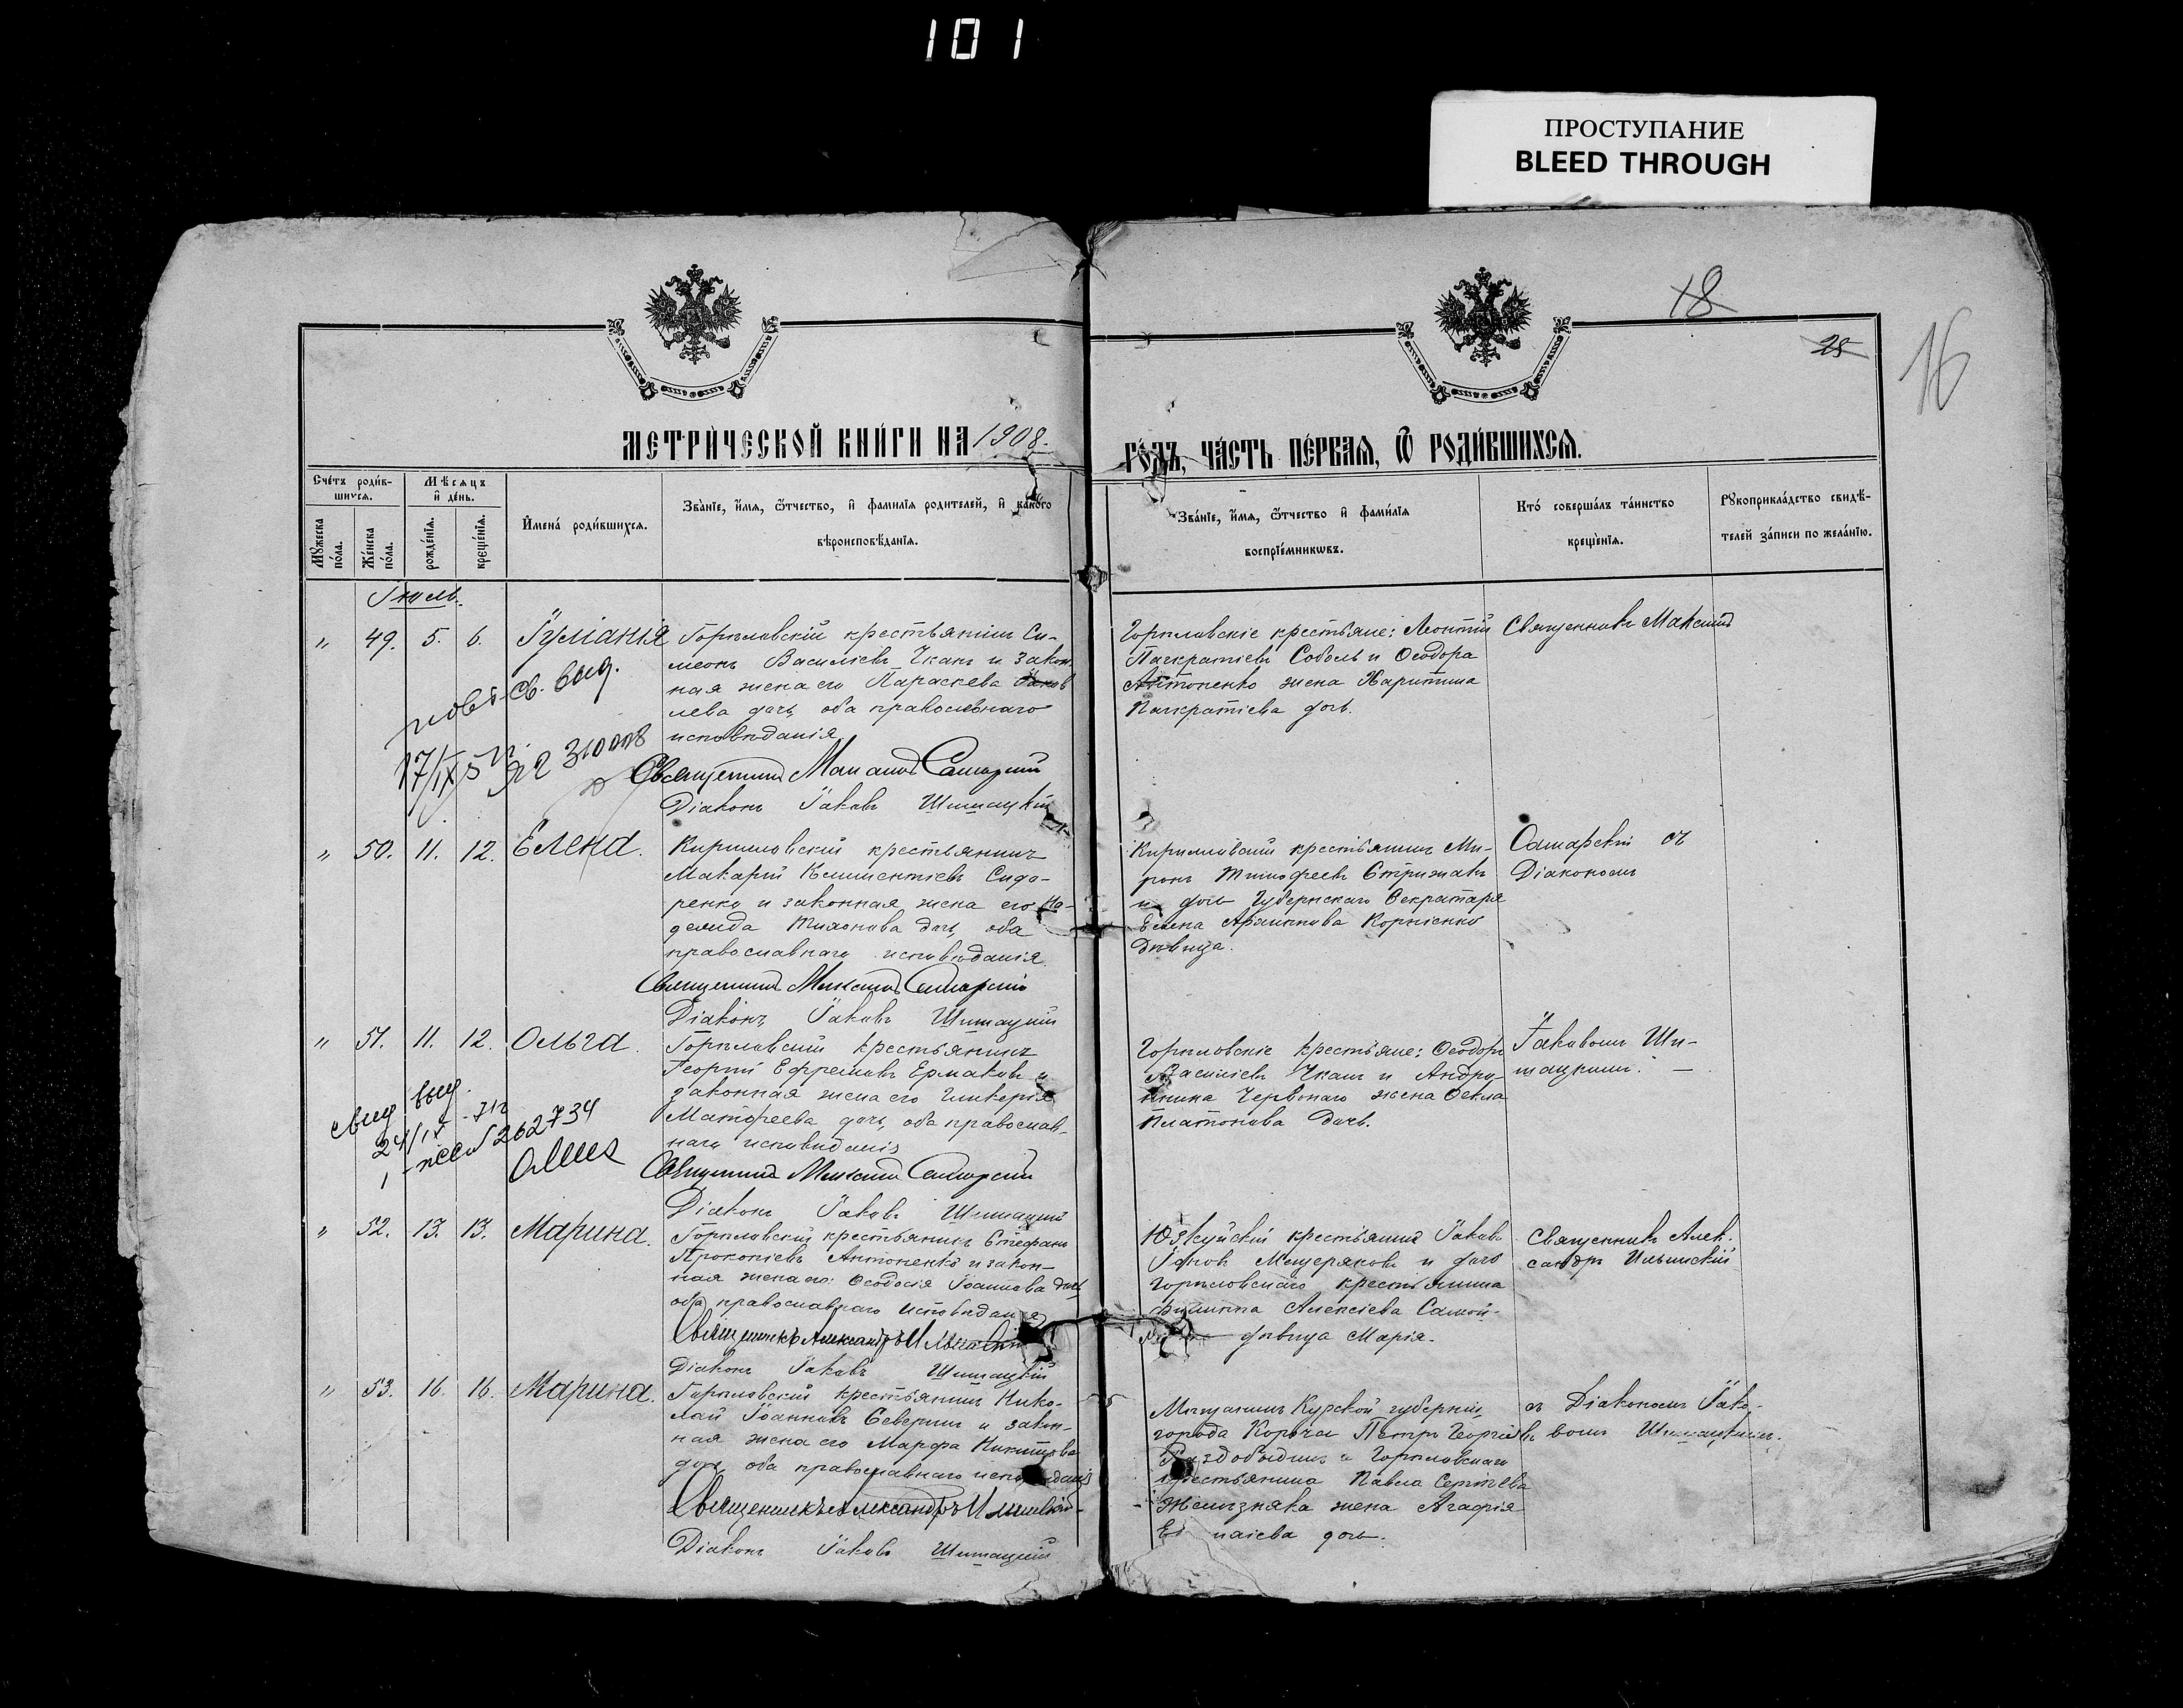 101
ПРОСТУПАНИЕ
BLEED THROUGH
18
25
16
МЕТРИ́ЧЕСКОЙ КНИ́ГИ НА 1908.
ГО́ДЪ, ЧА́СТЬ ПЕ́РВАѦ, Ѿ РОДИ́ВШИХСѦ.
Сче́тъ роди́в-
шихся.
Мѣ́сяцъ
и҆ де́нь.
Мꙋ́жеска по́ла.
Же́нска по́ла.
рожде́нїя.
креще́нїя.
И҆мена̀ роди́вшихся.
Зва́нїе, и҆́мя, ѻ҆́тчество, и҆ фамилїя родителей, и҆ како́го
вѣроисповѣ́данїя.
Зва́нїе, и҆́мя, ѻ҆́тчество и҆ фами́лїя
воспрїе́мникѡвъ.
Кто́ соверша́лъ та́инство
креще́нїя.
Рꙋкоприкла́дство свидѣ́-
телей за́писи по жела́нїю.
Іюль.
" 49. 5. 6. Іуліанія
Горъловскій крестьянинъ Си-
меонъ Васильевъ Чканъ и закон-
ная жена его Параскева Яков
лева дочь, оба православнаго
исповѣданія
Священникъ Максимъ Самарскій
Діаконъ Іаковъ Шитацкій
Горъловскіе крестьяне: Леонтій
Панкратіевъ Соболь и Ѳеодора
Антоненко жена Харитина
Панкратіева дочь.
Священникъ Максимъ
св. выд.
17/IX 5
310008
" 50. 11. 12. Елена.
Кирилловскій крестьянинъ
Макарій Климентіевъ Сидо-
ренко и законная жена его
Тихонова дочь, оба
православнаго исповѣданія.
Священникъ Максимъ Самарскій
Діаконъ Іаковъ Шитацкій
Кирилловскій крестьянинъ Ми-
ронъ Тимофеевъ Стрижакъ
и дочь Губернскаго Секретаря
Елена Корніенко
Дѣвица.
Самарскій съ
Діакономъ
" 51. 11. 12. Ольга.
Горъловскій крестьянинъ
Георгій Ефремовъ Ермаковъ и
законная жена его Гликерія
Матфеева дочь, оба православ-
наго исповѣданія
Священникъ Максимъ Самарскій
Діаконъ Іаковъ Шитацкій
Горъловскіе крестьяне: Ѳеодоръ
Васильевъ Чканъ и Андро-
ника Червонаго жена Ѳекла
Платонова дочь.
Іаковомъ Ши-
тацкимъ.
свид выд.
24/IX -71г
262734
" 52. 13. 13. Марина.
Горъловскій крестьянинъ Стефанъ
Прокопіевъ Антоненко и закон-
ная жена его: Ѳеодосія Іоаннова дочь
оба православнаго исповѣданія
Священникъ Александръ Ильинскій
Діаконъ Іаковъ Шитацкій
крестьянинъ Іаковъ
Мещеряковъ и дочь
Горъловскаго крестьянина
Филиппа Алексіева Самой-
дѣвица Марія.
Священникъ Алек-
сандръ Ильинскій
" 53. 16. 16. Марина.
Горъловскій крестьянинъ Нико-
лай Іоанновъ Северинъ и закон-
ная жена его Марфа Никитова
дочь, оба православнаго исповѣданія
Священникъ Александръ Ильинскій
Діаконъ Іаковъ Шитацкій
Мѣщанинъ Курской губерніи,
города Корочи Петръ Георгіевъ
и Горъловскаго
крестьянина Павла Сергіева
Желѣзняка жена Агафія
дочь.
съ Діакономъ Іако-
вомъ Шитацкимъ.